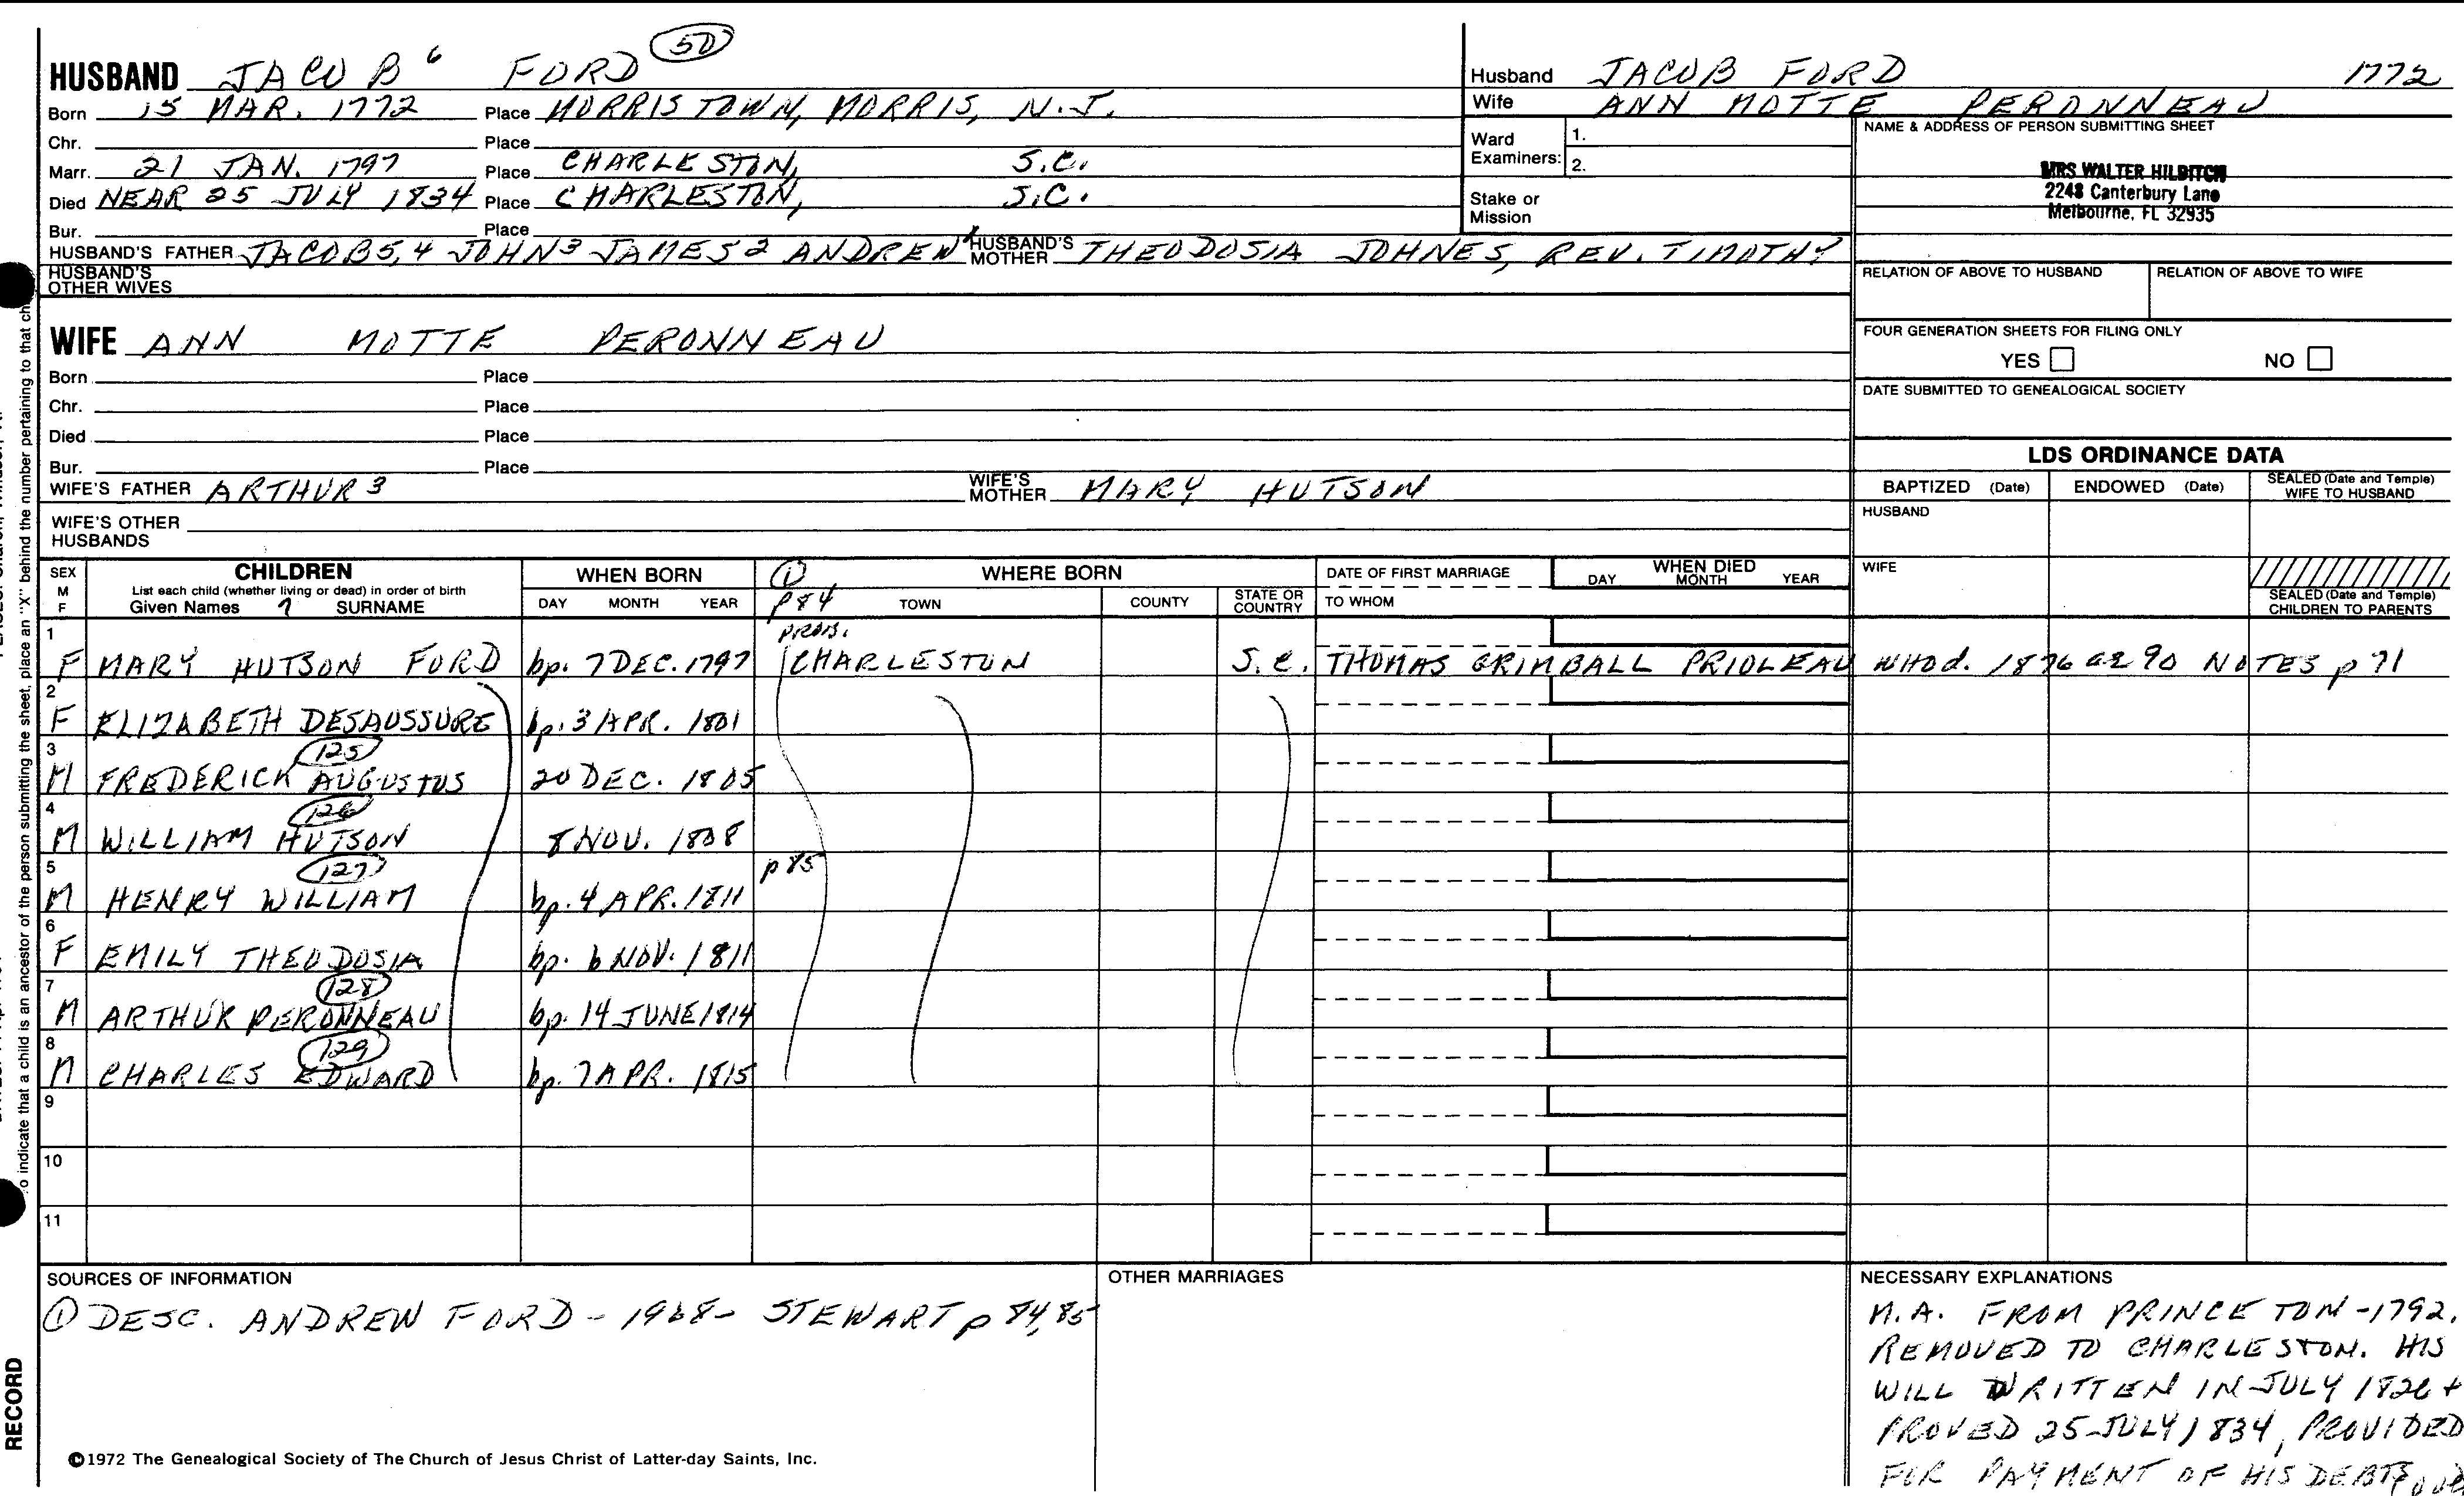 HUSBAND JACOB 6 FORD 50
Born 15 MAR. 1772 Place MORRISTOWN, MORRIS, N.J.
Chr. Place
Marr. 21 JAN. 1797 Place CHARLESTON, S.C.
Died NEAR 25 JULY 1834 Place CHARLESTON, S.C.
Bur. Place
HUSBAND'S FATHER JACOB5,4 JOHN3 JAMES2 ANDREW1 HUSBAND'S MOTHER THEODOSIA JOHNES, REV. TIMOTHY
HUSBAND'S OTHER WIVES
Husband JACOB FORD 1772
Wife ANN MOTTE PERONNEAU
Ward Examiners: 1.
2.
Stake or Mission
NAME & ADDRESS OF PERSON SUBMITTING SHEET
MRS WALTER HILDITCH
2248 Canterbury Lane
Melbourne, FL 32935
RELATION OF ABOVE TO HUSBAND RELATION OF ABOVE TO WIFE
FOUR GENERATION SHEETS FOR FILING ONLY
YES NO
DATE SUBMITTED TO GENEALOGICAL SOCIETY
WIFE ANN MOTTE PERONNEAU
Born Place
Chr. Place
Died Place
Bur. Place
WIFE'S FATHER ARTHUR 3 WIFE'S MOTHER MARY HUTSON
WIFE'S OTHER HUSBANDS
LDS ORDINANCE DATA
BAPTIZED (Date) ENDOWED (Date) SEALED (Date and Temple) WIFE TO HUSBAND
HUSBAND
WIFE
SEALED (Date and Temple) CHILDREN TO PARENTS
SEX M F CHILDREN WHEN BORN ① WHERE BORN DATE OF FIRST MARRIAGE WHEN DIED
List each child (whether living or dead) in order of birth
Given Names 7 SURNAME DAY MONTH YEAR p84 TOWN COUNTY STATE OR COUNTRY TO WHOM DAY MONTH YEAR
1 PROB.
F MARY HUTSON FORD bp. 7 DEC. 1797 CHARLESTON S.C. THOMAS GRIMBALL PRIOLEAU WHO d. 1876 ae 90 NOTES p 71
2
F ELIZABETH DESAUSSURE bp. 3 APR. 1801
3 125
M FREDERICK AUGUSTUS 20 DEC. 1805
4 126
M WILLIAM HUTSON 8 NOV. 1808
5 127 p 85
M HENRY WILLIAM bp. 4 APR. 1811
6
F EMILY THEODOSIA bp. 6 NOV. 1811
7 128
M ARTHUR PERONNEAU bp. 14 JUNE 1814
8 129
M CHARLES EDWARD bp. 7 APR. 1815
9
10
11
SOURCES OF INFORMATION
① DESC. ANDREW FORD - 1968 - STEWART p 84,85
©1972 The Genealogical Society of The Church of Jesus Christ of Latter-day Saints, Inc.
OTHER MARRIAGES
NECESSARY EXPLANATIONS
M.A. FROM PRINCETON - 1792.
REMOVED TO CHARLESTON. HIS
WILL WRITTEN IN JULY 1826 +
PROVED 25 JULY 1834, PROVIDED
FOR PAYMENT OF HIS DEBTS
o indicate that a child is an ancestor of the person submitting the sheet, place an "X" behind the number pertaining to that
RECORD